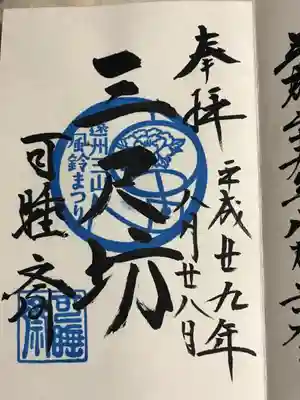 奉拝
平成廿九年
八月廿八日
三尺坊
遠州三山
風鈴まつり
可睡斎
可睡斎